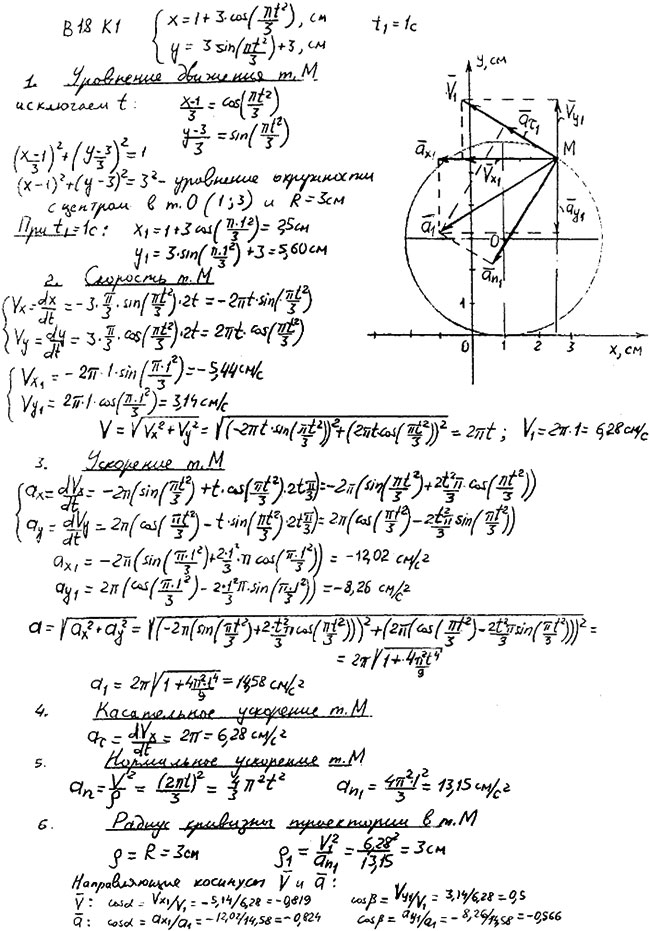 В18 К1 { x = 1 + 3·cos(πt²/3), см t₁ = 1c
y = 3 sin(πt²/3) + 3, см
1. Уровнение движения т. М
исключаем t: x-1/3 = cos(πt²/3)
y-3/3 = sin(πt²/3)
(x-1/3)² + (y-3/3)² = 1
(x-1)² + (y-3)² = 3² - уровнение окружности
с центром в т. О (1;3) и R = 3см
При t₁ = 1c: x₁ = 1 + 3 cos(π·1²/3) = 2,5 см
y₁ = 3·sin(π·1²/3) + 3 = 5,60 см
y, см
V̄₁ V̄y₁
āτ₁
āx₁ V̄x₁ M
ā₁ āy₁
O
ān₁
1
0 1 2 3
x, см
2. Скорость т. М
{ Vx = dx/dt = -3·π/3·sin(πt²/3)·2t = -2πt·sin(πt²/3)
Vy = dy/dt = 3·π/3·cos(πt²/3)·2t = 2πt·cos(πt²/3)
{ Vx₁ = -2π·1·sin(π·1²/3) = -5,44 см/с
Vy₁ = 2π·1·cos(π·1²/3) = 3,14 см/с
V = √(Vx² + Vy²) = √((-2πt·sin(πt²/3))² + (2πt cos(πt²/3))²) = 2πt; V₁ = 2π·1 = 6,28 см/с
3. Ускорение т. М
{ ax = dVx/dt = -2π(sin(πt²/3) + t·cos(πt²/3)·2tπ/3) = -2π(sin(πt²/3) + 2t²π/3·cos(πt²/3))
ay = dVy/dt = 2π(cos(πt²/3) - t·sin(πt²/3)·2tπ/3) = 2π(cos(πt²/3) - 2t²π/3 sin(πt²/3))
ax₁ = -2π(sin(π·1²/3) + 2·1²/3·π cos(π·1²/3)) = -12,02 см/с²
ay₁ = 2π(cos(π·1²/3) - 2·1²/3 π·sin(π·1²/3)) = -8,26 см/с²
a = √(ax² + ay²) = √((-2π(sin(πt²/3) + 2·t²/3 π cos(πt²/3)))² + (2π(cos(πt²/3) - 2t²/3 π sin(πt²/3)))²) =
= 2π√(1 + 4π²t⁴/9)
a₁ = 2π√(1 + 4π²1⁴/9) = 14,58 см/с²
4. Касательное ускорение т. М
aτ = dVx/dt = 2π = 6,28 см/с²
5. Нормальное ускорение т. М
an = V²/ρ = (2πt)²/3 = 4/3 π²t² an₁ = 4π²·1²/3 = 13,15 см/с²
6. Радиус кривизны траектории в т. М
ρ = R = 3см ρ₁ = V₁²/an₁ = 6,28²/13,15 = 3 см
Направляющие косинусы V̄ и ā:
V̄: cosα = Vx₁/V₁ = -5,14/6,28 = -0,819 cosβ = Vy₁/V₁ = 3,14/6,28 = 0,5
ā: cosα = ax₁/a₁ = -12,02/14,58 = -0,824 cosβ = ay₁/a₁ = -8,26/14,58 = -0,566